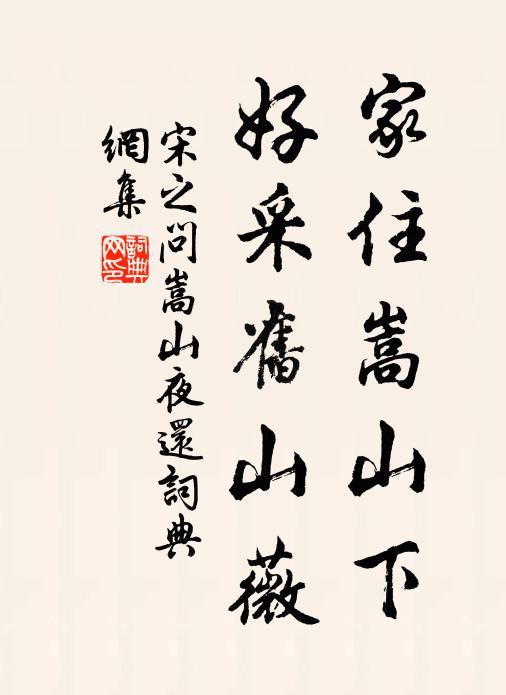 家住嵩山下
好采舊山薇
宋之问嵩山夜還詞典
網集
詞典
网印